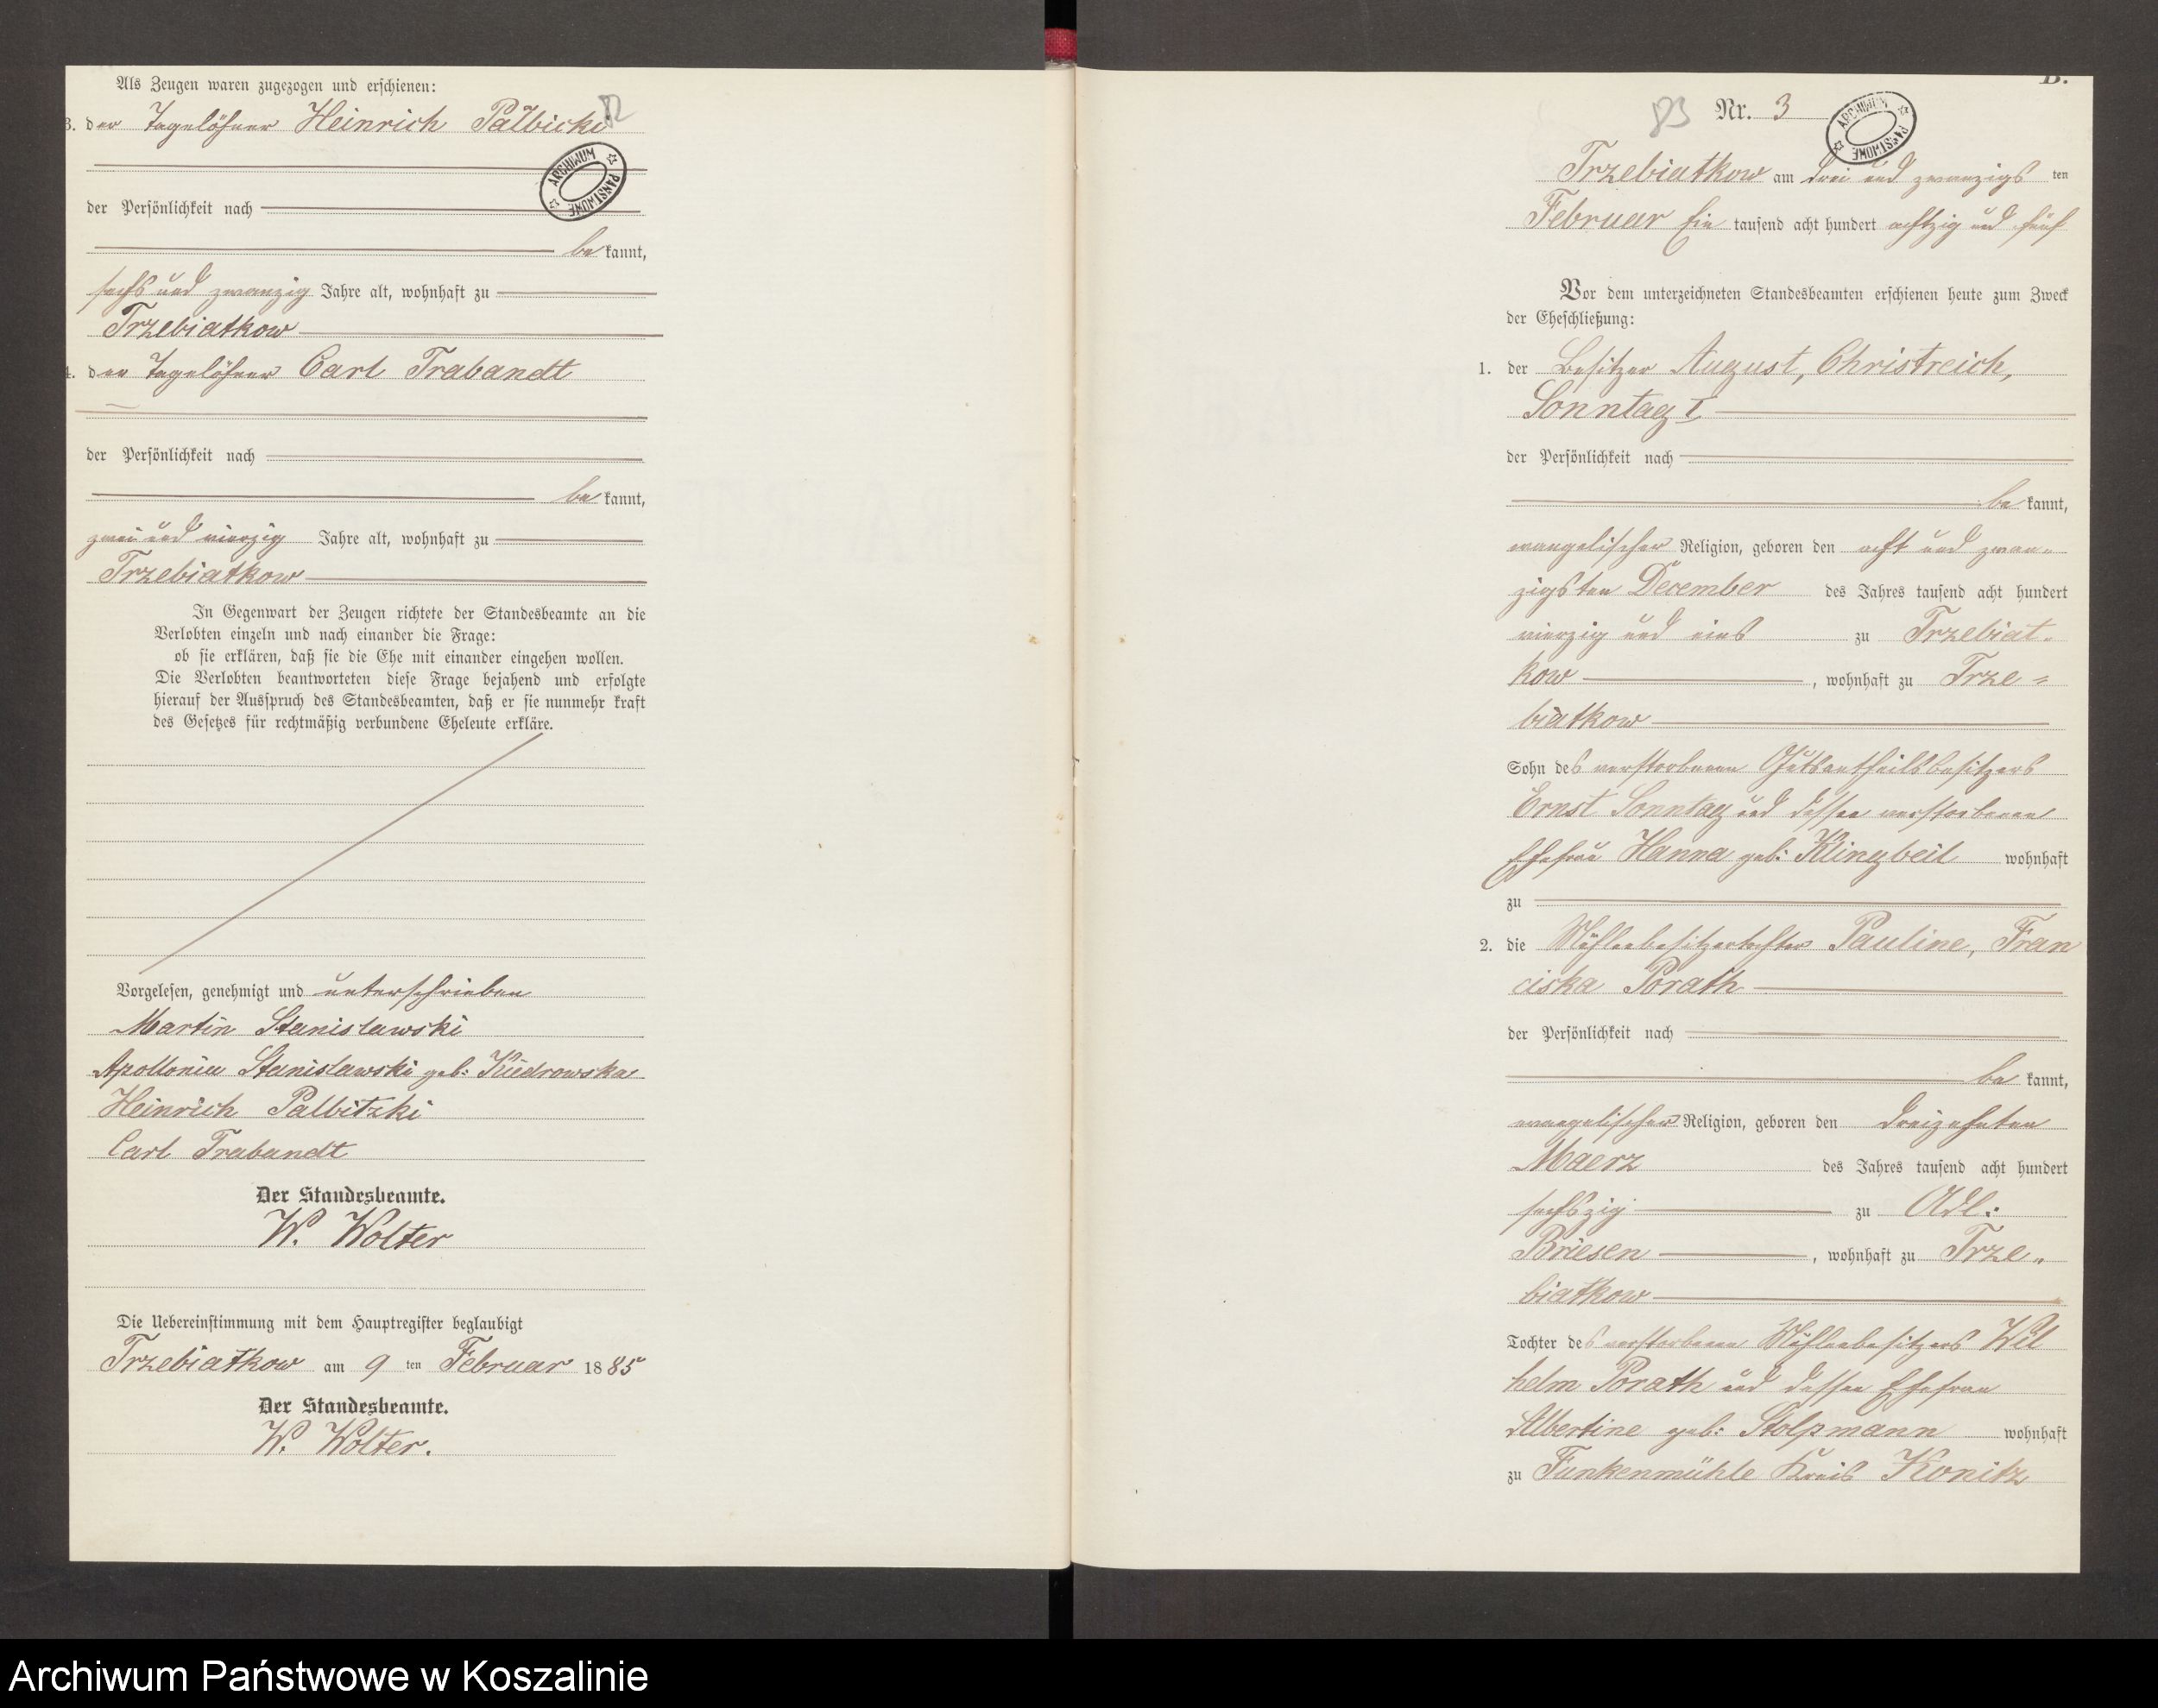 Als Zeugen waren zugezogen und erschienen:
82
3. der Tagelöhner Heinrich Palbicki
ARCHIWUM PAŃSTWOWE
der Persönlichkeit nach
be kannt,
sechs und zwanzig Jahre alt, wohnhaft zu
Trzebiatkow
4. der Tagelöhner Carl Trabandt
der Persönlichkeit nach
be kannt,
zwei und vierzig Jahre alt, wohnhaft zu
Trzebiatkow
In Gegenwart der Zeugen richtete der Standesbeamte an die
Verlobten einzeln und nach einander die Frage:
ob sie erklären, daß sie die Ehe mit einander eingehen wollen.
Die Verlobten beantworteten diese Frage bejahend und erfolgte
hierauf der Ausspruch des Standesbeamten, daß er sie nunmehr kraft
des Gesetzes für rechtmäßig verbundene Eheleute erkläre.
Vorgelesen, genehmigt und unterschrieben
Martin Stanislawski
Apollonia Stanislawski geb: Kiedrowska
Heinrich Palbitzki
Carl Trabandt
Der Standesbeamte.
W. Wolter
Die Uebereinstimmung mit dem Hauptregister beglaubigt
Trzebiatkow am 9 ten Februar 1885
Der Standesbeamte.
W. Wolter.
B.
83 Nr. 3
ARCHIWUM PAŃSTWOWE
Trzebiatkow am drei und zwanzigs ten
Februar Ein tausend acht hundert achtzig und fünf
Vor dem unterzeichneten Standesbeamten erschienen heute zum Zweck
der Eheschließung:
1. der Besitzer August, Christreich,
Sonntag I
der Persönlichkeit nach
be kannt,
evangelischer Religion, geboren den acht und zwan-
zigsten December des Jahres tausend acht hundert
vierzig und eins zu Trzebiat-
kow , wohnhaft zu Trze=
biatkow
Sohn des verstorbenen Gutsantheilsbesitzers
Ernst Sonntag und dessen verstorbenen
Ehefrau Hanna geb: Klingbeil wohnhaft
zu
2. die Mühlenbesitzertochter Pauline, Fran
ciska Porath
der Persönlichkeit nach
be kannt,
evangelischer Religion, geboren den dreizehnten
Maerz des Jahres tausend acht hundert
sechszig zu Adl:
Briesen , wohnhaft zu Trze-
biatkow
Tochter des verstorbenen Mühlenbesitzers Wil
helm Porath und dessen Ehefrau
Albertine geb: Stolpmann wohnhaft
zu Funkenmühle Kreis Konitz
Archiwum Państwowe w Koszalinie